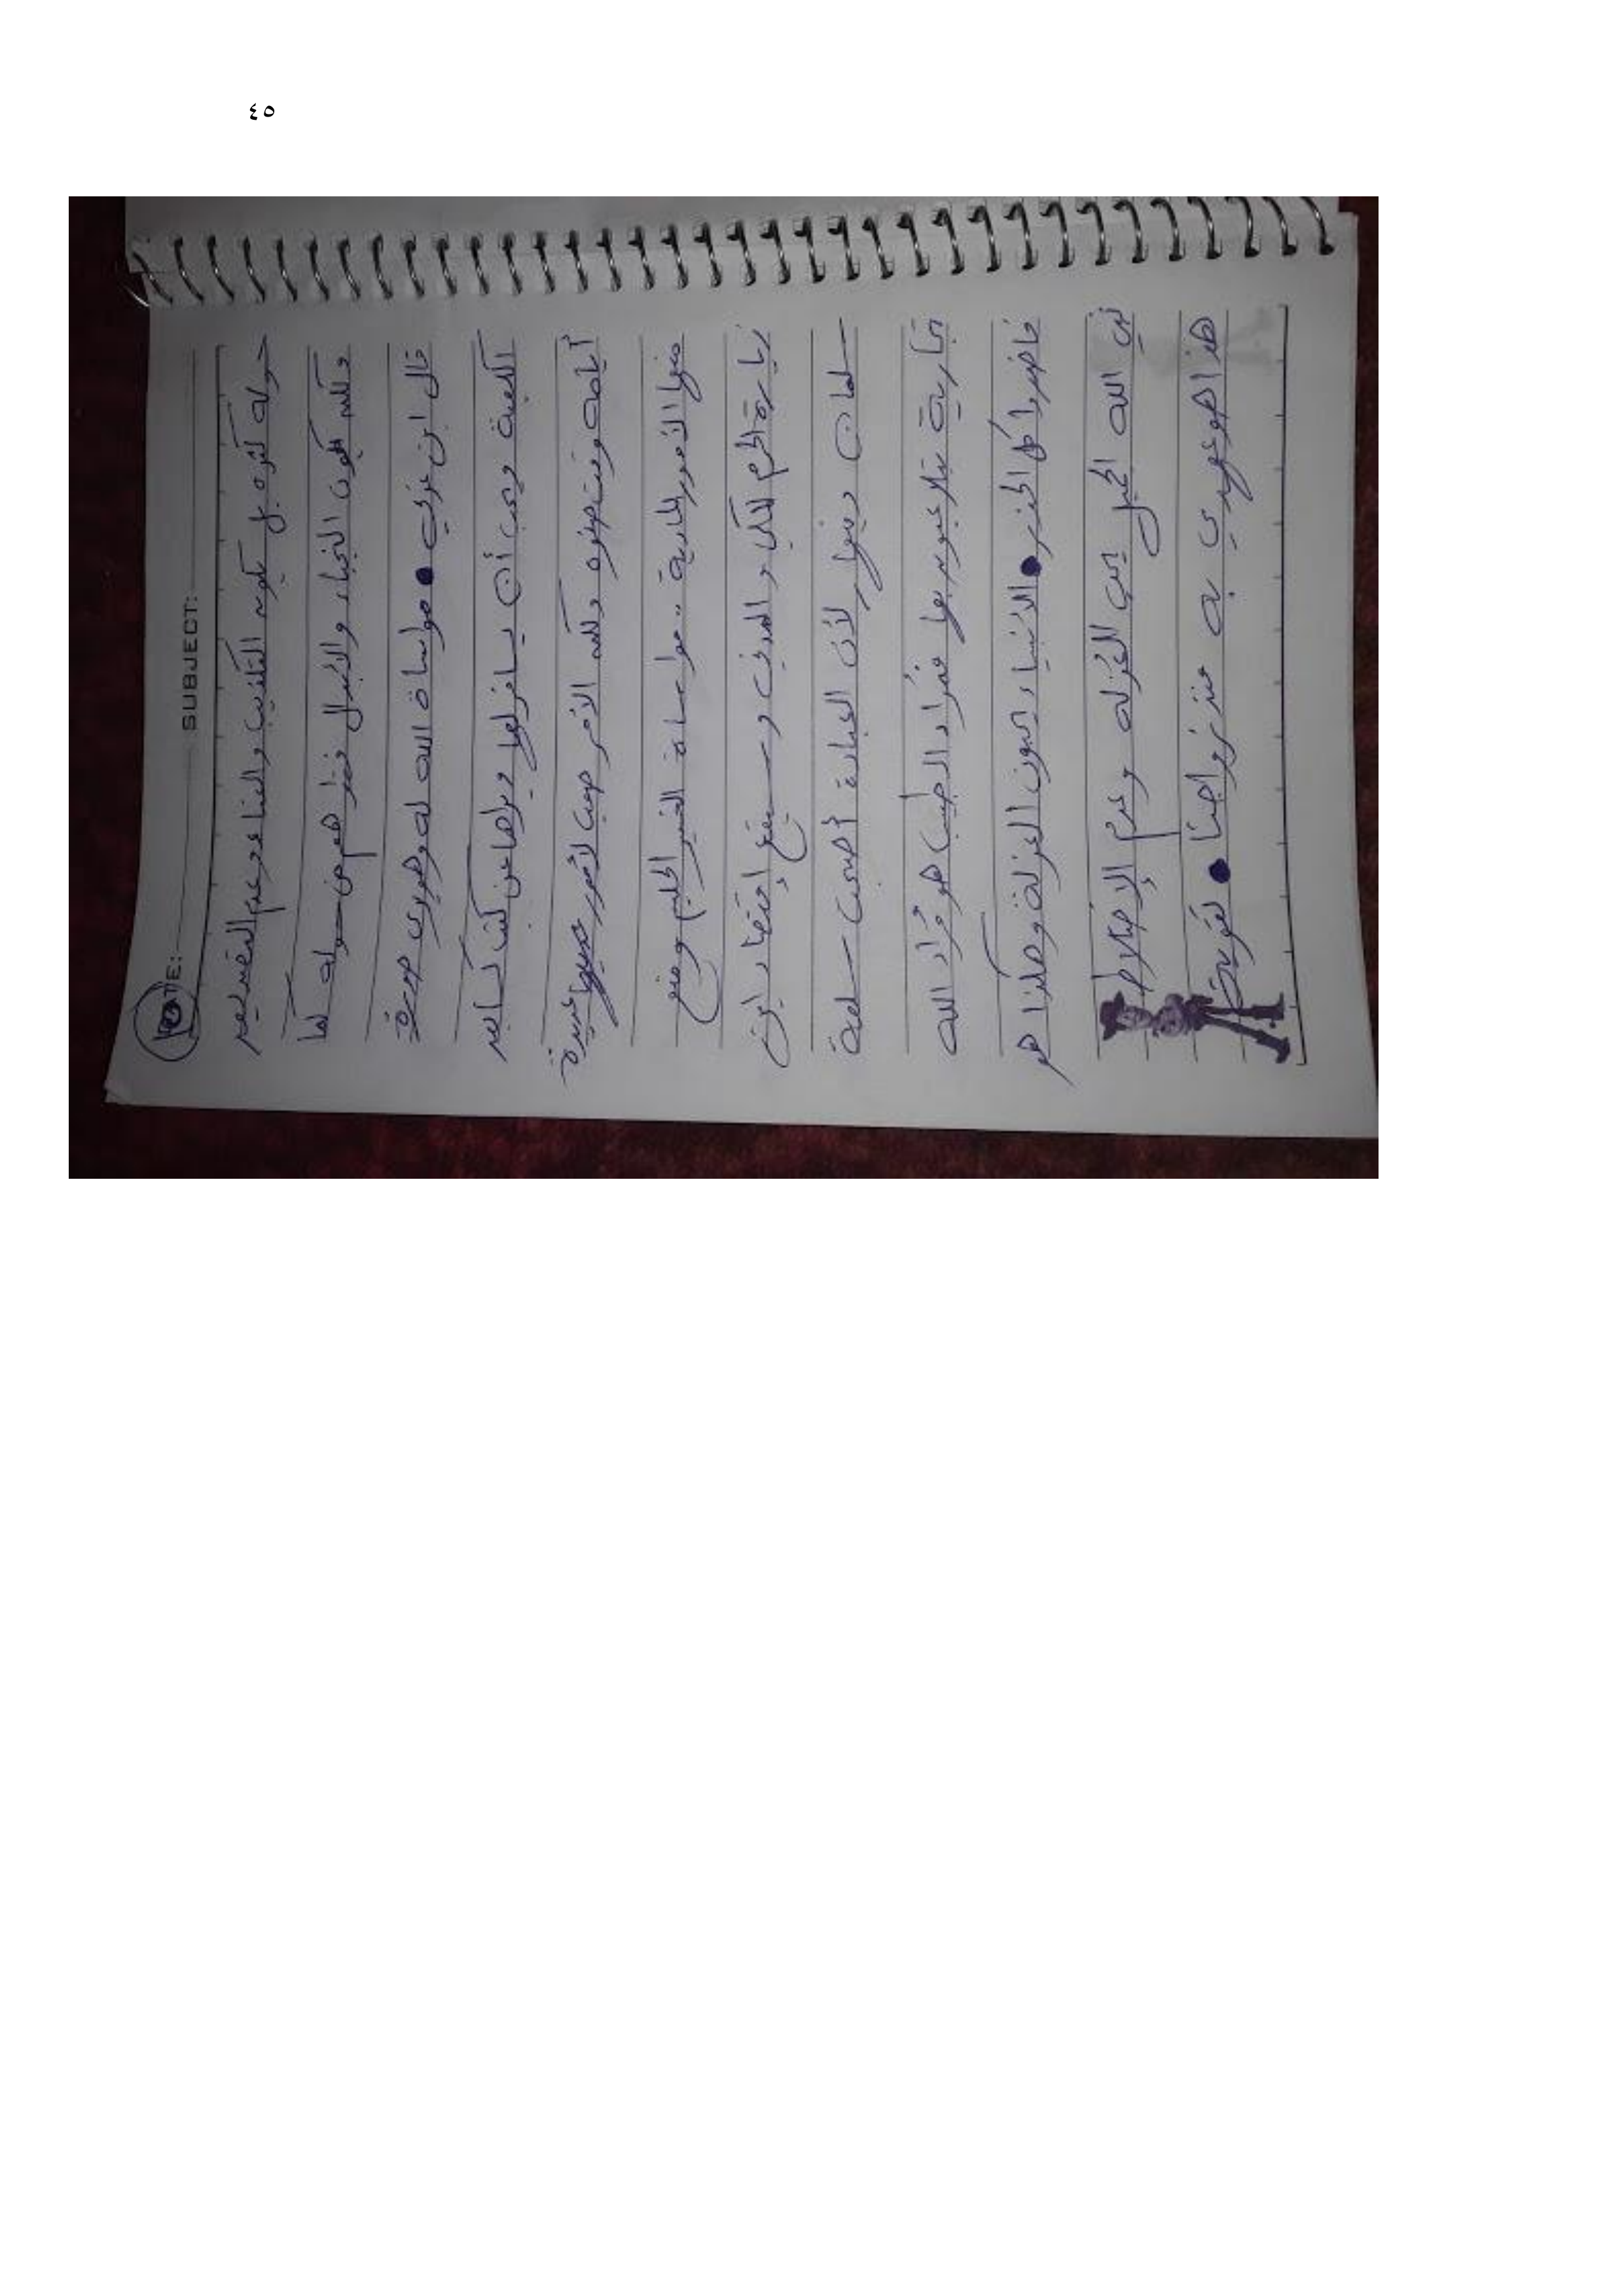 ٤٥
DATE: SUBJECT:
حوله كثرة بل يكون التكذيب والعناد وعدم التصديق
ولكن يكون النجباء والأبدال نفر هم من حوله كما
قال ابن عربي ● مواساة الله له وهو يرى صورة
الكعبة ويحب أن يسافر لها ويراها عن كثب كسابق
أيامه وقت صغره ولكن الأمر صعب لأمور عديدة
منها الأمور المادية .. مواساة الخبير الحليم ومنع
زيارة الحرم المكي و المدني و سيقع إحتضار ابن
سلمان لأن العبادة أصبحت سلعة
تجارية يتلاعبون بها فقراء هو مراد الله
● الأنبياء يحبون العزلة وهكذا هم
نبي الله يحب العزلة وعدم الإختلاط
هذا المهدي به منذ زواجنا ●